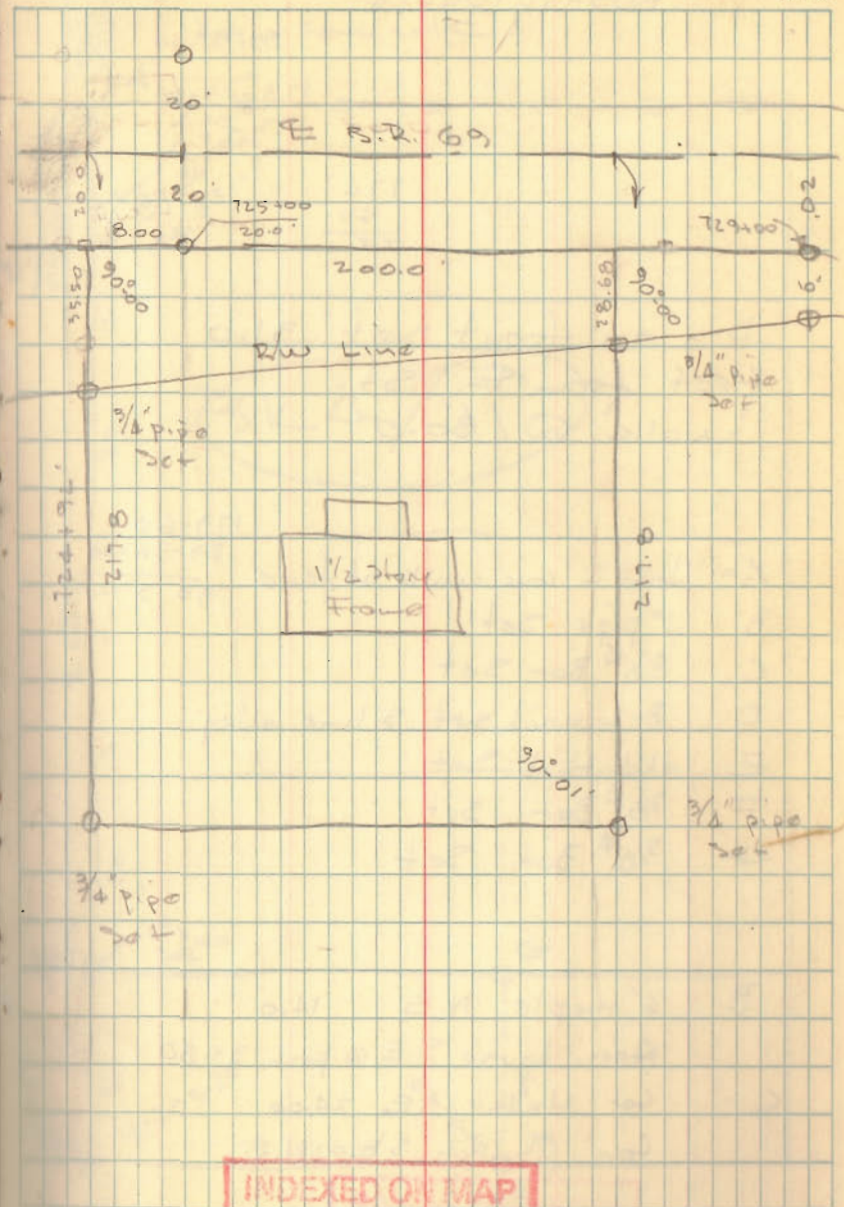 20'
℄ S.R. 69
20.0
20'
725+00
20.0'
8.00
729+00
20.
200.0'
35.50
90°00
28.68
90°00
R/W Line
3/4" pipe
Set
3/4" pipe
Set
724+92
217.8
1 1/2 Story
Frame
217.8
90°-01'
3/4" pipe
Set
3/4" pipe
Set
INDEXED ON MAP